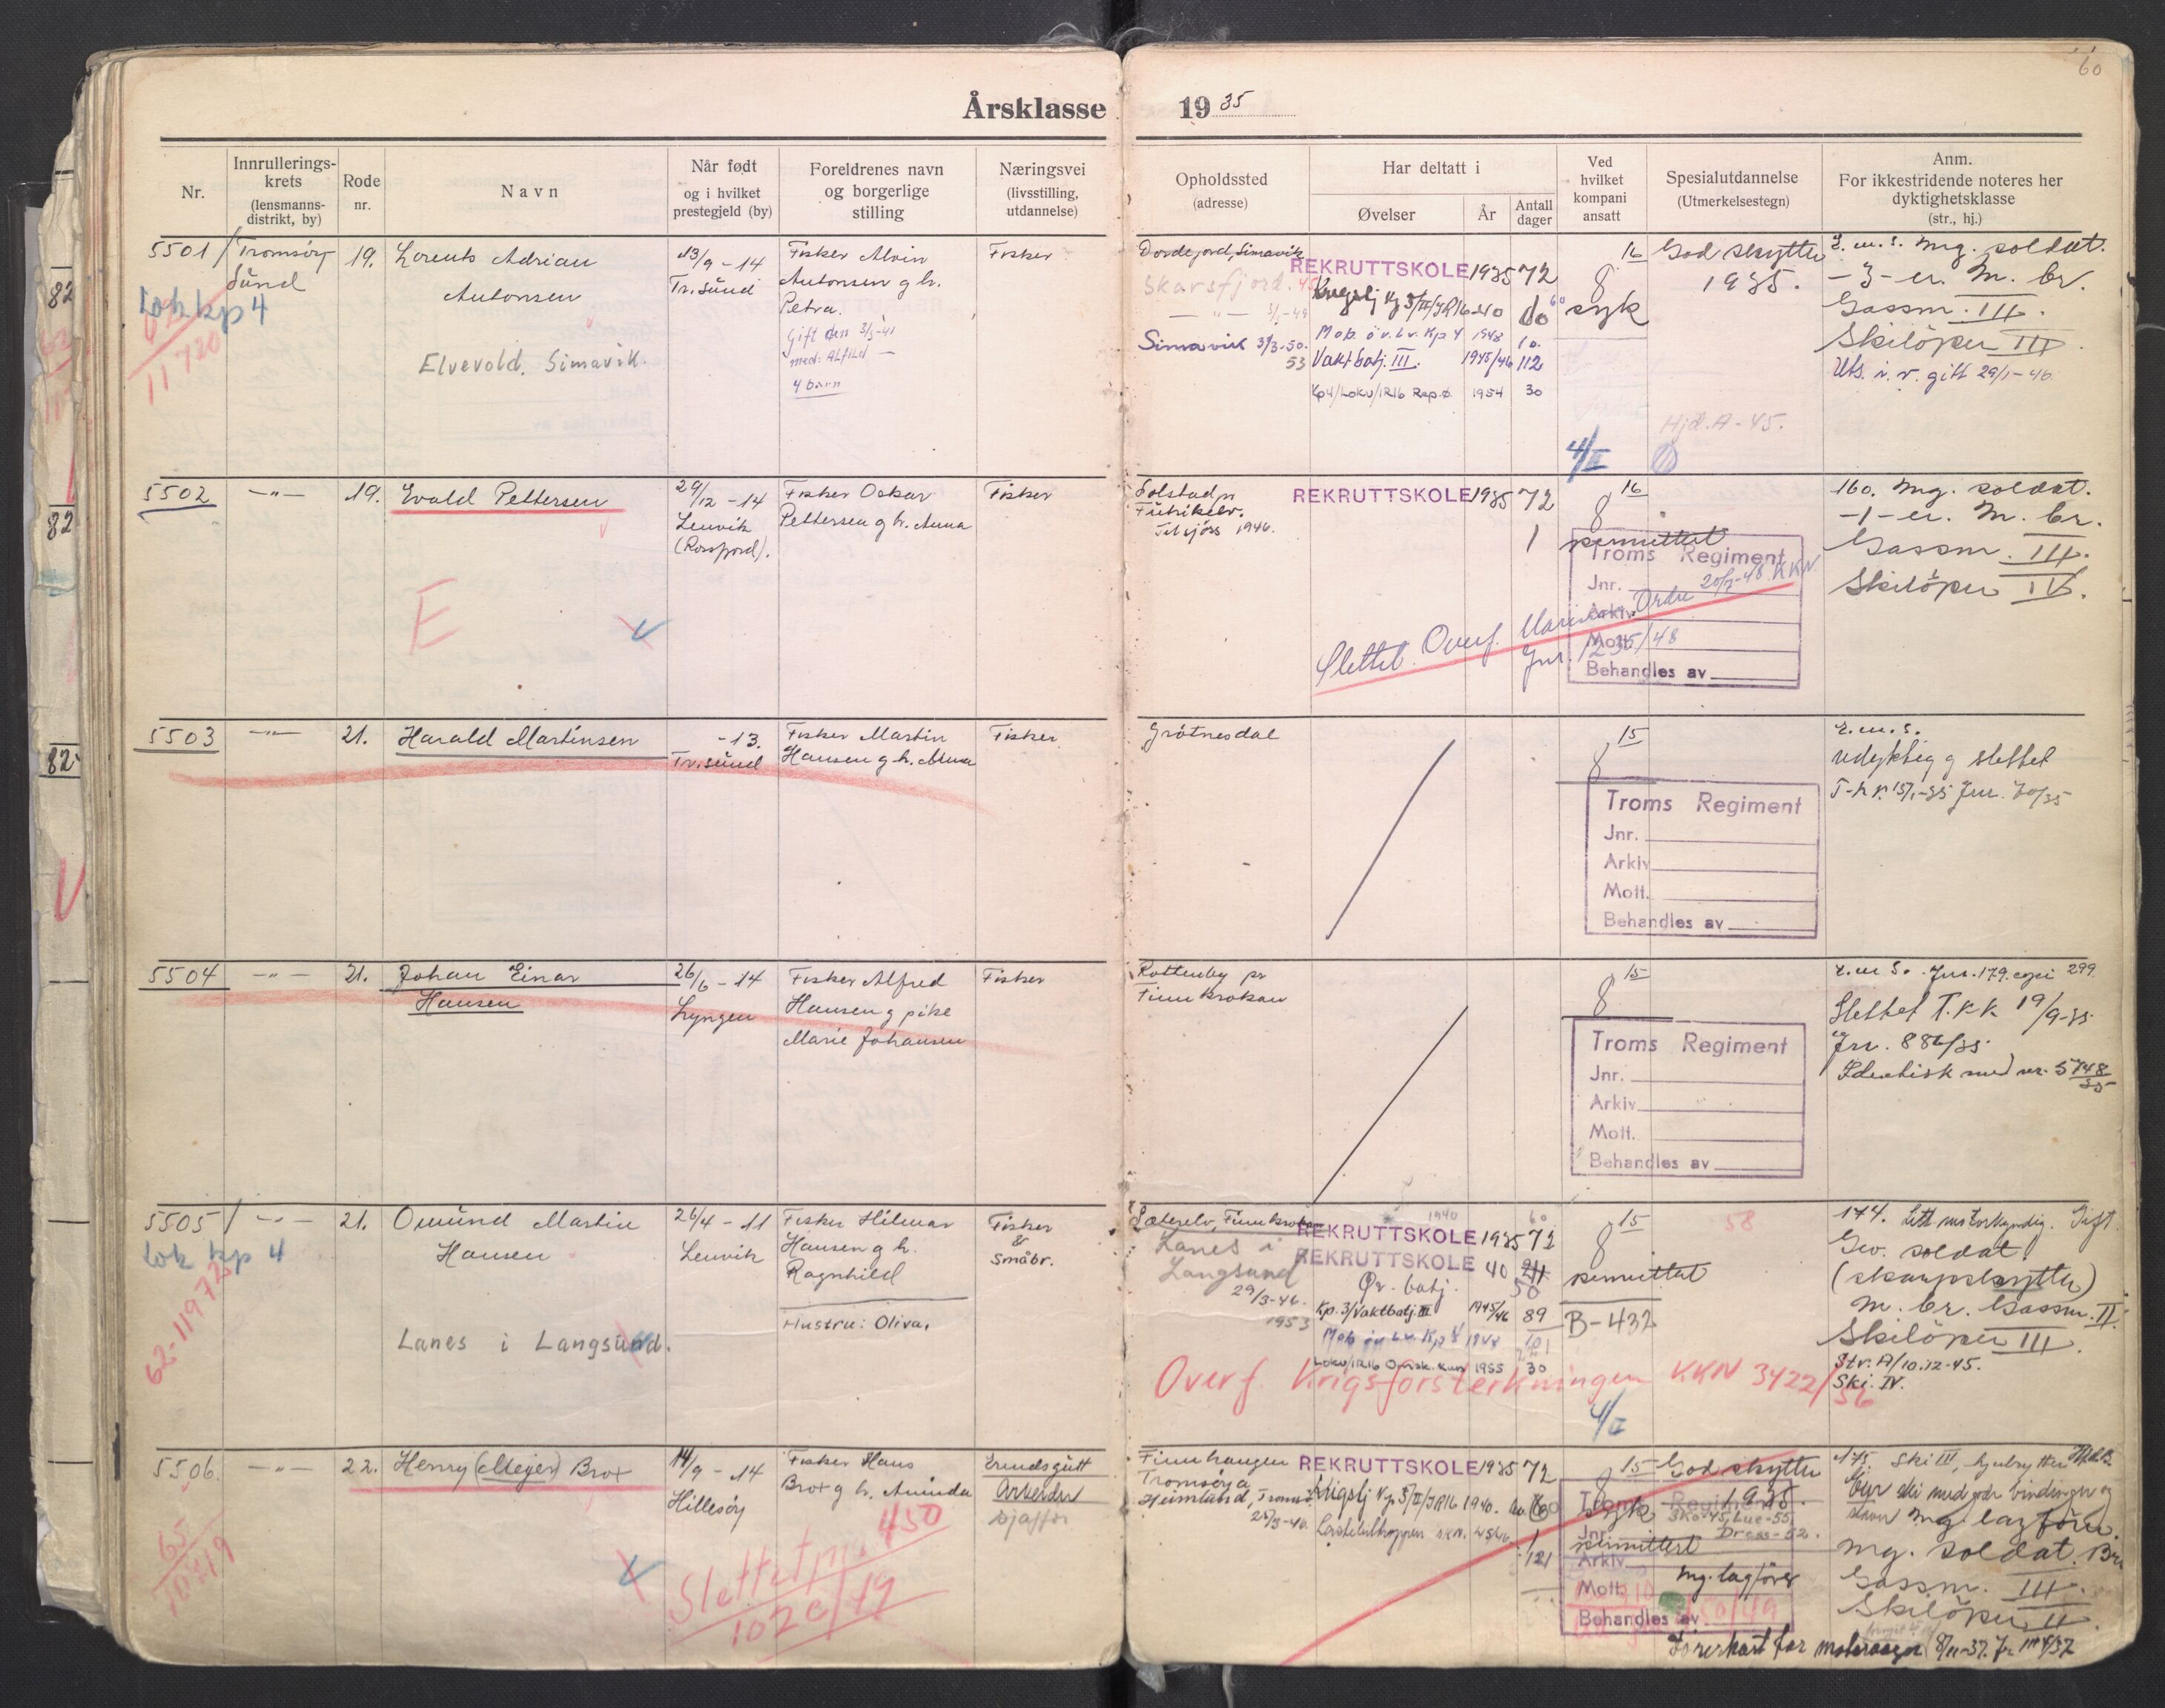 60
Årsklasse 1935
Nr.
Innrullerings-
krets
(lensmanns-
distrikt, by)
Rode
nr.
Navn
Når født
og i hvilket
prestegjeld (by)
Foreldrenes navn
og borgerlige
stilling
Næringsvei
(livsstilling,
utdannelse)
Opholdssted
(adresse)
Har deltatt i
Øvelser
År
Antall
dager
Ved
hvilket
kompani
ansatt
Spesialutdannelse
(Utmerkelsestegn)
Anm.
For ikkestridende noteres her
dyktighetsklasse
(str., hj.)
5501
Tromsöy
Sund
Lok kp 4
11720
19.
Lorents Adrian
Antonsen
Elvevold. Simavik.
13/9-14
Tr. sund
Fisker Alvin
Antonsen g h.
Petra.
Gift den 3/5-41
med: Alfild
4 barn
Fisker
Skarsfjord. 45
Simavik 31/3-50.
53
REKRUTTSKOLE 1935 72
Mob. öv. Lv. Kp 4 1948 10.
Vaktbatj. III. 1945/46 112
Kp4/Lokv/IR16 Rep.ø. 1954 30
16
8
syk
4/II
God skytter
1935.
Hjd. A-45.
L. m. S. Mg. soldat.
-3- er. M. br.
Gassm. III.
Skilöper III.
Uts. i. v. gitt 29/1-46
5502
-"-
19.
Evald Pettersen
E
29/12-14
Lenvik
(Rossfjord).
Fisker Oskar
Pettersen g h. Anna
Fisker
Solstad pr
Tilsjöss 1946.
REKRUTTSKOLE 1935 72
1
16
8
permittert
Slettet. Overf. Marinen Ordre 20/7-48 KKN
Jnr. 1235/48
Troms Regiment
Jnr.
Arkiv
Mott.
Behandles av
160. Mg. soldat.
-1- er. M. br.
Gassm. III.
Skilöper IV.
5503
-"-
21.
Harald Martinsen
-13.
Tr. sund
Fisker Martin
Hansen g h. Anna
Fisker
Grötnesdal
15
8
Troms Regiment
Jnr.
Arkiv
Mott.
Behandles av
L. m. S.
udyktig og slettet
5504
-"-
21.
Johan Einar
Hansen
26/6-14
Lyngen
Fisker Alfred
Hansen g pike
Marie Johansen
Fisker
Rottenby pr
Finnkroken
15
8
Troms Regiment
Jnr.
Arkiv
Mott.
Behandles av
L. m S. Jnr. 179. copi 299
Slettet T. K. K. 19/9-35
Jnr. 886/35
Identisk med nr. 5748/35
5505
-"-
Lok kp 4
62-11972
21.
Omund Martin
Hansen
Lanes i Langsund.
26/4-11
Lenvik
Fisker Hilmar
Hansen g h.
Ragnhild
Hustru: Oliva.
Fisker
&
Småbr.
Sæterelv, Finnkroken
Lanes i
Langsund
29/3-46.
1953
1940
60
REKRUTTSKOLE 1935 72
REKRUTTSKOLE 40
50
Kp. 3/Vaktbatj. III 1945/46 89
Mob öv Lv. Kp 4 1948 10
Lokv/IR16 Omsk. kurs 1955 30
15
8
permittert
B-432
58
4/II
174. Litt motorkyndig. Gift
Gev. soldat.
(skarpskytter)
M. br. Gassm. II.
Skilöper III.
Str: A/10.12-45.
Ski. IV.
Overf. Krigsforsterkningen KKN 3422/56
5506.
-"-
65
22.
Henry (Meyer) Brox
14/9-14
Hillesöy
Fisker Hans
Brox g h. Aminda
Slettet jnr. 450
102c/49
Erendsgutt
Arbeider
Sjaffør
Finnhaugen
Tromsöya
Heimland, Tromsö
REKRUTTSKOLE 1935 72
1
121
15
8
syk
permittert
God skytter
1935.
Sko-45, Lue-55
Dress-52.
Mg. lagförer
Troms Regiment
Jnr.
Arkiv
Mott.
Behandles av
450/49
175. Ski III,
Eier ski med gode bindinger og
staver Mg. lagförer.
Mg. soldat.
Gassm. III.
Skilöper II.
Förerkort for motorvogn 8/11-37.
82
82
82